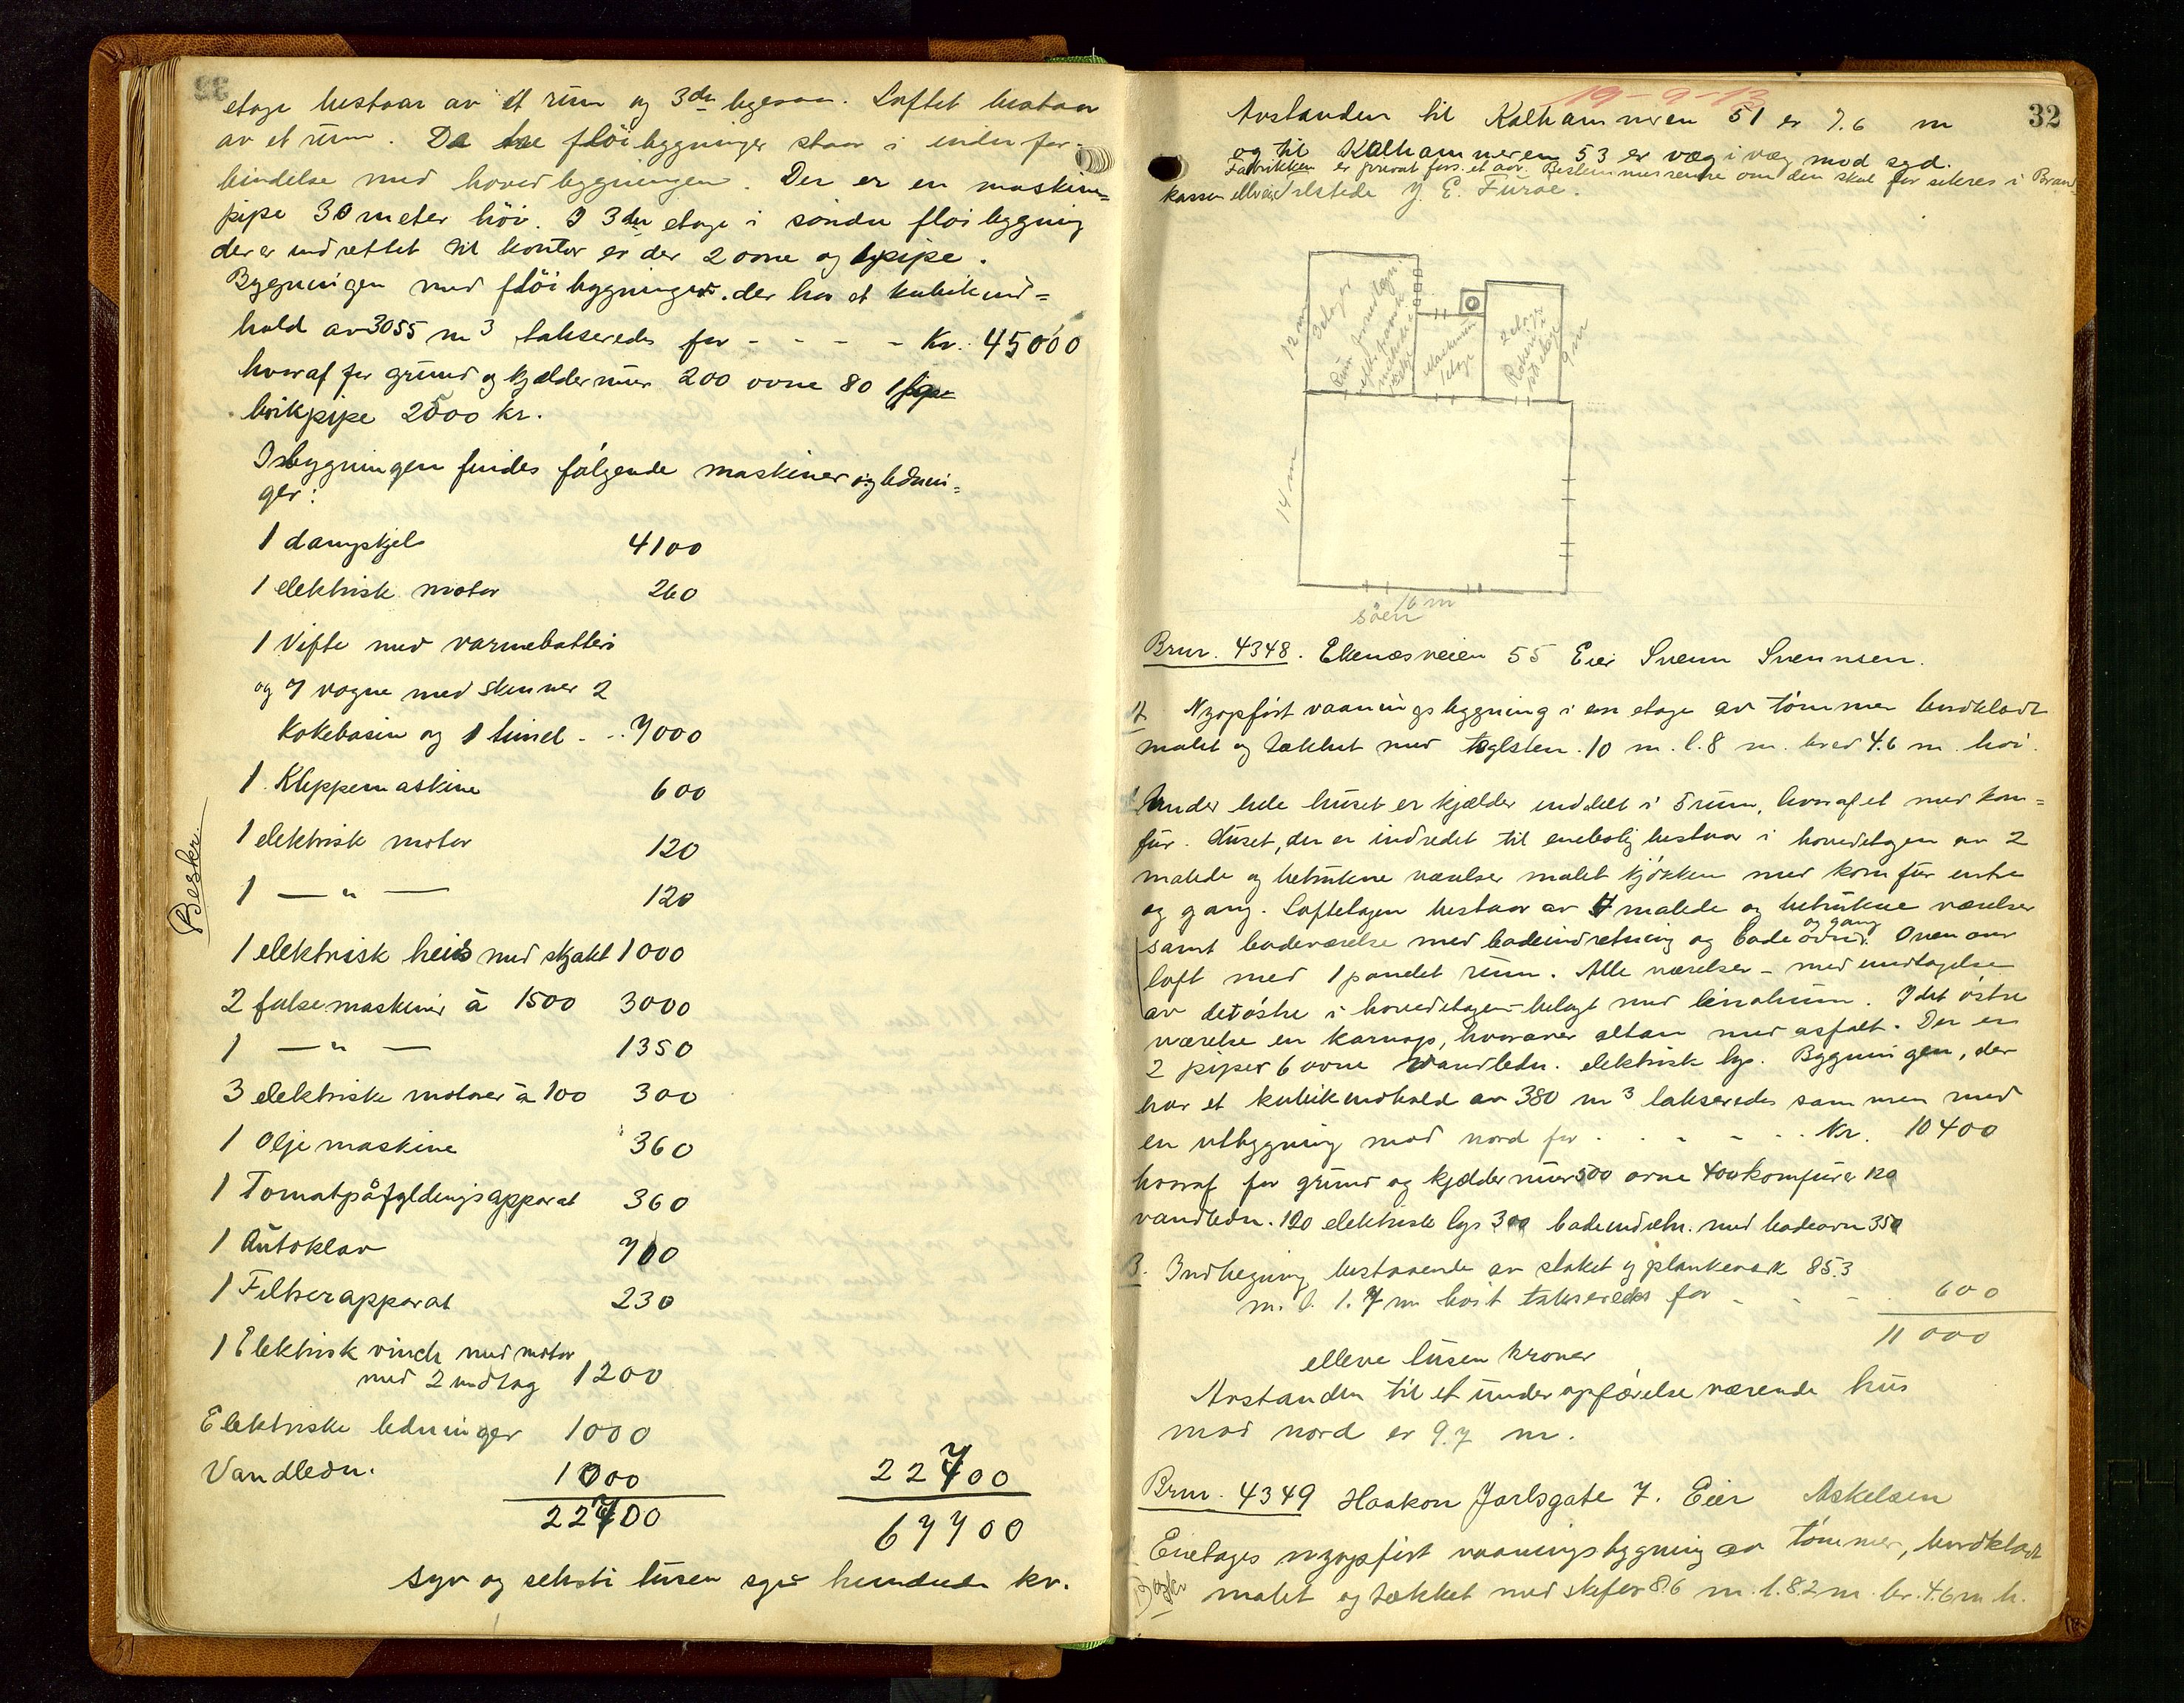 etage bestaar av et rum og 3die ligesaa. Loftet bestaar
av et rum. De to fløibygninger staar i indre for-
bindelse med hovedbygningen. Der er en maskin=
pipe 30 meter höi. I 3die etage i søndre fløibygning
der er indrettet til kontor er der 2 ovne og 1 pipe.
Bygningen med fløibygninger, der har et kubikind=
hold av 3055 m3 takseredes for - - - - Kr. 45000
hvoraf for grund og kjeldermur 200 ovne 80 1 pipe
brikpipe 2500 kr.
I bygningen findes følgende maskiner og lednin=
ger:
1 dampkjel 4100
1 elektrisk motor 260
1 Vifte med varmebatteri
og 7 vogne med skinner 2
kokebasin og 1 tunel - .. 7000
1 Klippemaskine 600
1 elektrisk motor 120
1 — " — 120
1 elektrisk heis med skjakt 1000
2 falsemaskiner à 1500 3000
1 — " — 1350
3 elektriske motorer à 100 300
1 Oljemaskine 360
1 Tomatpåfyldingsapparat 360
1 Autoklav 700
1 Filtrerapparat 230
1 Elektrisk vinch med motor
med 2 indtag 1200
Elektriske ledninger 1000
Vandledn. 1000 22700
22700 67700
syv og seksti tusen syv hundrede kr.
Beskr.
19-9-13
32
Avstanden til Kalhammeren 51 er 7.6 m
og til Kalhammeren 53 er væg i væg mod syd.
Fabrikken er privat fors. et aar. Bestemmer senere om den skal forsikres i Brand
kassen eller andetsteds J. E. Furøe.
12 m
3 etager
Maskinrum
1 etage
2 etager
9 m
14 m
16 m
söen
Brnr. 4348. Ekenæsveien 55 Eier Svenn Svennsen.
A. Nyopført vaaningsbygning i en etage av tømmer bordklædt
malet og tækket med teglsten. 10 m. l. 8 m. bred 4.6 m. høi.
Under hele huset er kjælder inddelt i 5 rum, hvoraf et med kom=
fur. Huset, der er indredet til enebolig bestaar i hovedetagen av 2
malede og betrukne værelser malet kjøkken med komfur entre
og gang. Loftetagen bestaar av 4 malede og betrukne værelser
samt badeværelse med badeindretning og badeovn og gang. Oven over
loft med 1 panelet rum. Alle værelser - med undtagelse
av det østre i hovedetagen - belagt med linoleum. I det østre
værelse en karnap, hvorover altan med asfalt. Der er
2 piper 6 ovne vandledn. elektrisk lys. Bygningen, der
har et kubikindhold av 380 m3 takseredes sammen med
en utbygning mod nord for . . - - . . Kr. 10400
hvoraf for grund og kjældermur 500 ovne 400 komfurer 120
vandledn. 120 elektriske lys 300 badeindretn. med badeovn 350
B. Indhegning bestaaende av staket og plankeverk 85.3
m. l. 1.7 m høit takseredes for - - - 600
11 000
elleve tusen kroner
Avstanden til et under opførelse værende hus
mod nord er 9.7 m.
Brnr. 4349 Haakon Jarlsgate 7. Eier Askelsen
Enetages nyopført vaaningsbygning av tømmer, bordklædt
malet og tækket med skifer 8.6 m. l. 8.2 m. br. 4.6 m h.